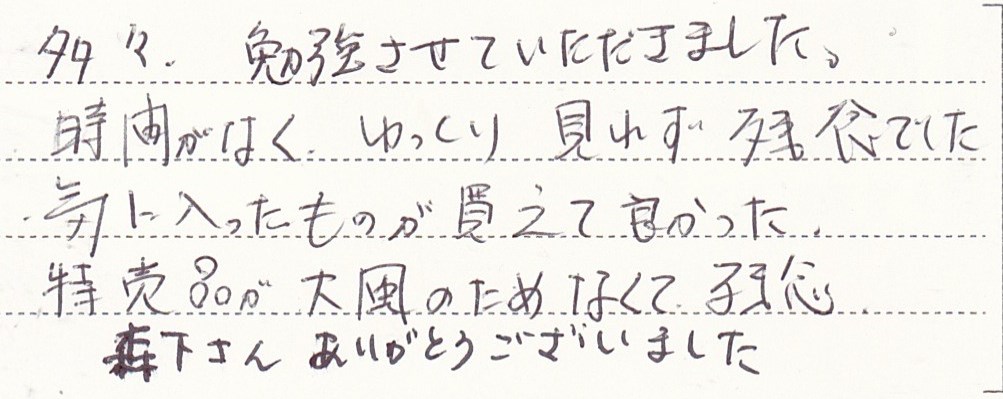 多々、勉強させていただきました。
時間がなく、ゆっくり見れず残念でした
気に入ったものが買えて良かった、
特売品が大風のためなくて残念、
森下さん ありがとうございました